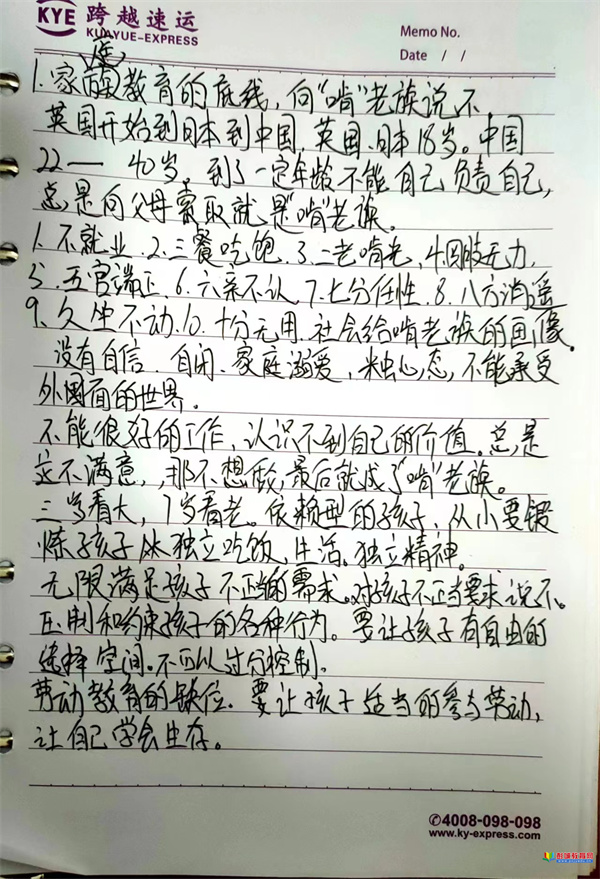 KYE 跨越速运
KUAYUE-EXPRESS
Memo No.
Date / /
庭
1.家教育的底线,向“啃”老族说不
英国开始到日本到中国,英国、日本18岁。中国
22—40岁。到了一定年龄不能自己负责自己,
总是向父母索取就是“啃”老族。
1.不就业、2.三餐吃饱、3.二老啃光、4.四肢无力、
5.五官端正、6.六亲不认、7.七分任性、8.八方逍遥
9.久坐不动、10.十分无用、社会给啃老族的画像。
没有自信、自闭、家庭溺爱、心态,不能承受
外面的世界。
不能很好的工作,认识不到自己的价值。总是
这不满意,那不想做,最后就成了“啃”老族。
三岁看大,7岁看老。依赖型的孩子,从小要锻
炼孩子从独立吃饭、生活。独立精神。
无限满足孩子不正当的需求。对孩子不正当要求说不。
压制和约束孩子的各种行为。要让孩子有自由的
选择空间。不可以过分控制。
劳动教育的缺位。要让孩子适当的参与劳动,
让自己学会生存。
✆4008-098-098
www.ky-express.com